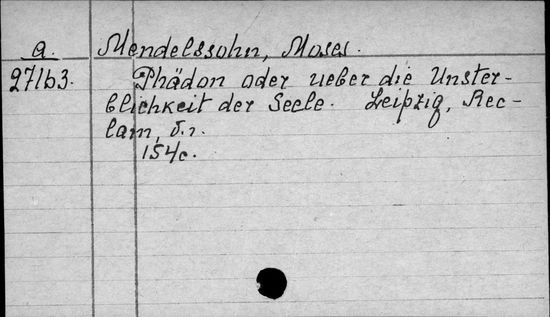 a. Mendelssohn, Moses.
97163. Phädon oder ueber die Unster-
blichkeit der Seele. Leipzig, Rec-
lam, б.г.
154с.